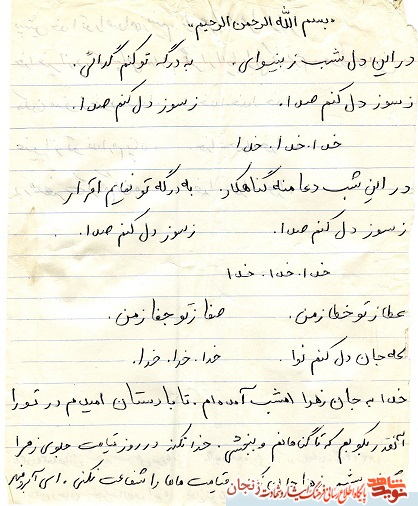 "بسم الله الرحمن الرحیم"
در این دل شب ز بینوای. به درگه تو کنم گدائی.
ز سوز دل کنم صدا. ز سوز دل کنم صدا.
خدا. خدا. خدا
در این شب دعا منه گناهکار. به درگه تو نمایم اقرار
ز سوز دل کنم صدا. ز سوز دل کنم صدا.
خدا. خدا. خدا
عطا ز تو خطا ز من. صفا ز تو جفا ز من.
جان دل کنم نوا خدا. خدا. خدا.
خدا به جان زهرا امشب آمده‌ام. تا با دستان امیدم در تو را
آنقدر بکوبم که تا گناهانم و ببخشی. خدا نکند در روز قیامت جلوی زهرا
قیامت ماها را شفاعت نکنی.
نوید شاهد
پایگاه اطلاع رسانی فرهنگ ایثار و شهادت زنجان